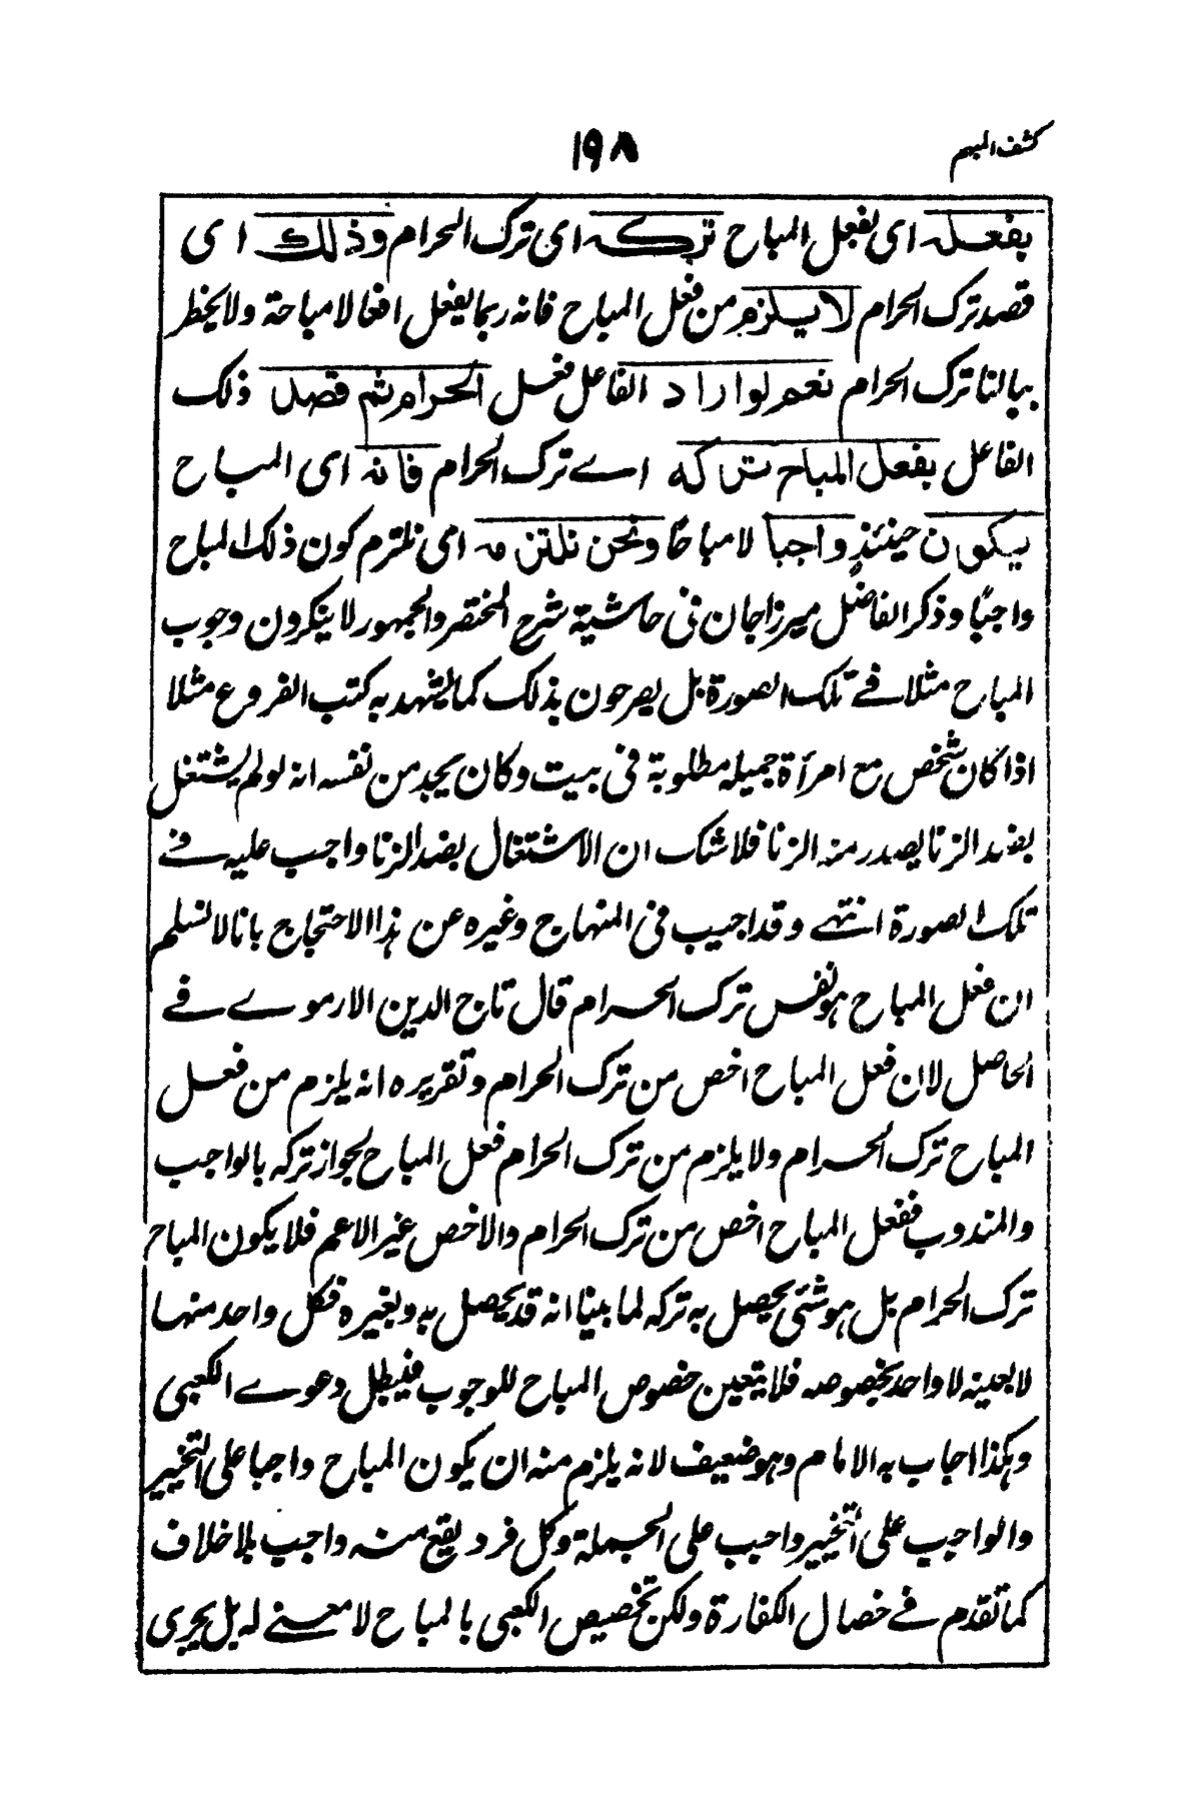 كشف المبهم
١٩٨
بفعله اى بفعل المباح تركه اى ترك الحرام وذلك اى
قصد ترك الحرام لا يلزم من فعل المباح فانه ربما يفعل افعالا مباحة ولا يخطر
ببالنا ترك الحرام نعم لو اراد الفاعل فعل الحرام ثم قصد ذلك
الفاعل بفعل المباح تركه اے ترك الحرام فانه اى المباح
يكون حينئذٍ واجبا لا مباحًا ونحن نلتزمه اى نلتزم كون ذلك المباح
واجبًا وذكر الفاضل ميرزا جان فى حاشية شرح المختصر والجمهور لا ينكرون وجوب
المباح مثلا فے تلك الصورة بل يصرحون بذلك كما يشهد به كتب الفروع مثلا
اذا كان شخص مع امرأة جميله مطلوبة فى بيت وكان يجد من نفسه انه لو لم يشتغل
بضد الزنا يصدر منه الزنا فلا شك ان الاشتغال بضد الزنا واجب عليه فے
تلك الصورة انتهے وقد اجيب فى المنهاج وغيره عن هذا الاحتجاج بانا لا نسلم
ان فعل المباح هو نفس ترك الحرام قال تاج الدين الارموے فے
الحاصل لان فعل المباح اخص من ترك الحرام وتقريره انه يلزم من فعل
المباح ترك الحرام ولا يلزم من ترك الحرام فعل المباح لجواز تركه بالواجب
والمندوب ففعل المباح اخص من ترك الحرام والاخص غير الاعم فلا يكون المباح
ترك الحرام بل هو شئى يحصل به تركه لما بينا انه قد يحصل به وبغيره فكل واحد منها
لا بعينه لا واحد بخصوصه فلا يتعين خصوص المباح للوجوب فيبطل دعوے الكعبى
وهكذا اجاب به الامام وهو ضعيف لانه يلزم منه ان يكون المباح واجبا على التخيير
والواجب على التخيير واجب على الجملة وكل فرد يقع منه واجب بلا خلاف
كما تقدم فے خصال الكفارة ولكن تخصيص الكعبى بالمباح لا معنے له بل يجرى